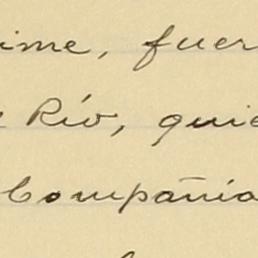 ime, fuer
Río, quie
Compañía